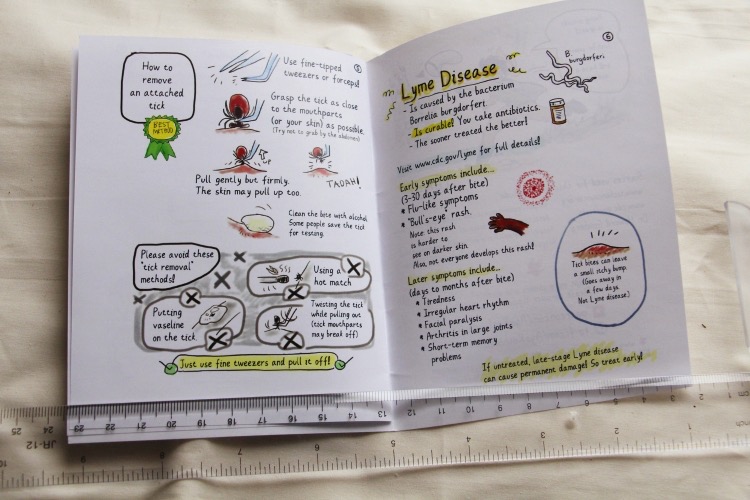 5
How to
remove
an attached
tick
BEST
METHOD
Use fine-tipped
tweezers or forceps!
Grasp the tick as close
to the mouthparts
(or your skin) as possible.
(Try not to grab by the abdomen)
Pull gently but firmly.
The skin may pull up too.
TADAH!
Clean the bite with alcohol.
Some people save the tick
for testing.
Please avoid these
"tick removal"
methods!
Using a
hot match
Putting
vaseline
on the tick
Twisting the tick
while pulling out
(tick mouthparts
may break off)
Just use fine tweezers and pull it off!
6
Lyme Disease
B.
burgdorferi
- Is caused by the bacterium
Borrelia burgdorferi.
- Is curable! You take antibiotics.
- The sooner treated the better!
Visit www.cdc.gov/lyme for full details!
Early symptoms include...
(3-30 days after bite)
* Flu-like symptoms
* "Bull's-eye" rash.
Note: this rash
is harder to
see on darker skin.
Also, not everyone develops this rash!
Later symptoms include...
(days to months after bite)
* Tiredness
* Irregular heart rhythm
* Facial paralysis
* Arthritis in large joints
* Short-term memory
problems
Tick bites can leave
a small itchy bump
(Goes away in
a few days.
Not Lyme disease.)
If untreated, late-stage Lyme disease
can cause permanent damage! So treat early!
25 24 23 22 21 20 19 18 17 16 15 14 13 12 11 10 9 8 7 6 5 4 3 2 1cm
JR-12
10 9 7 6 5 4 3 2 1